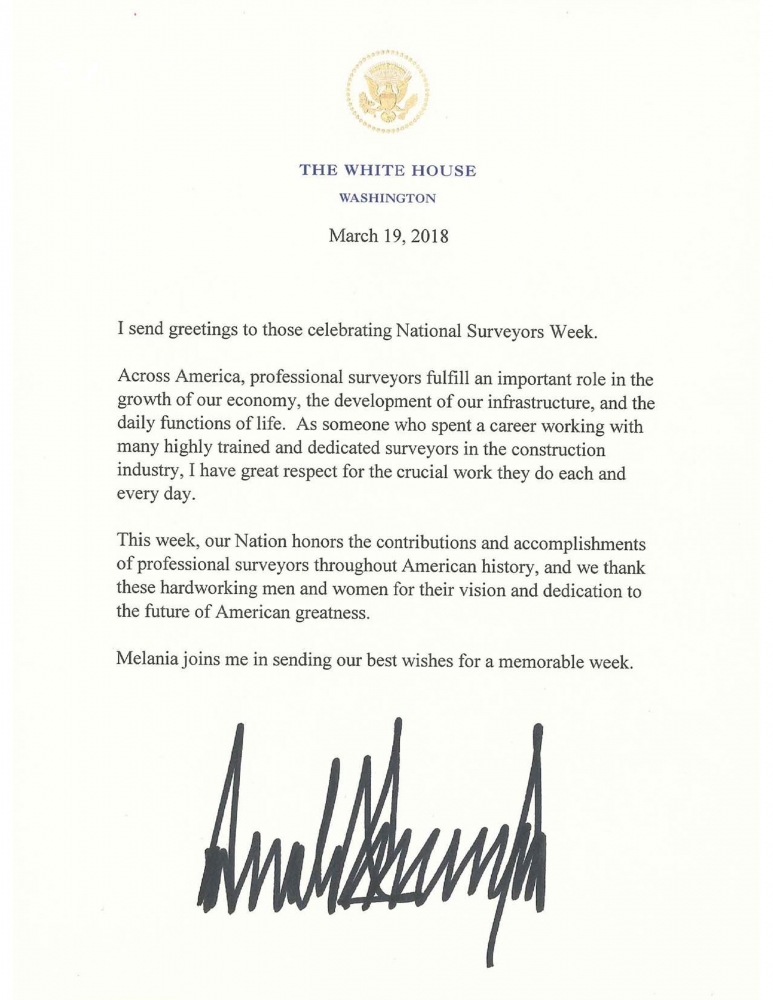 THE WHITE HOUSE
WASHINGTON
March 19, 2018
I send greetings to those celebrating National Surveyors Week.
Across America, professional surveyors fulfill an important role in the
growth of our economy, the development of our infrastructure, and the
daily functions of life.  As someone who spent a career working with
many highly trained and dedicated surveyors in the construction
industry, I have great respect for the crucial work they do each and
every day.
This week, our Nation honors the contributions and accomplishments
of professional surveyors throughout American history, and we thank
these hardworking men and women for their vision and dedication to
the future of American greatness.
Melania joins me in sending our best wishes for a memorable week.